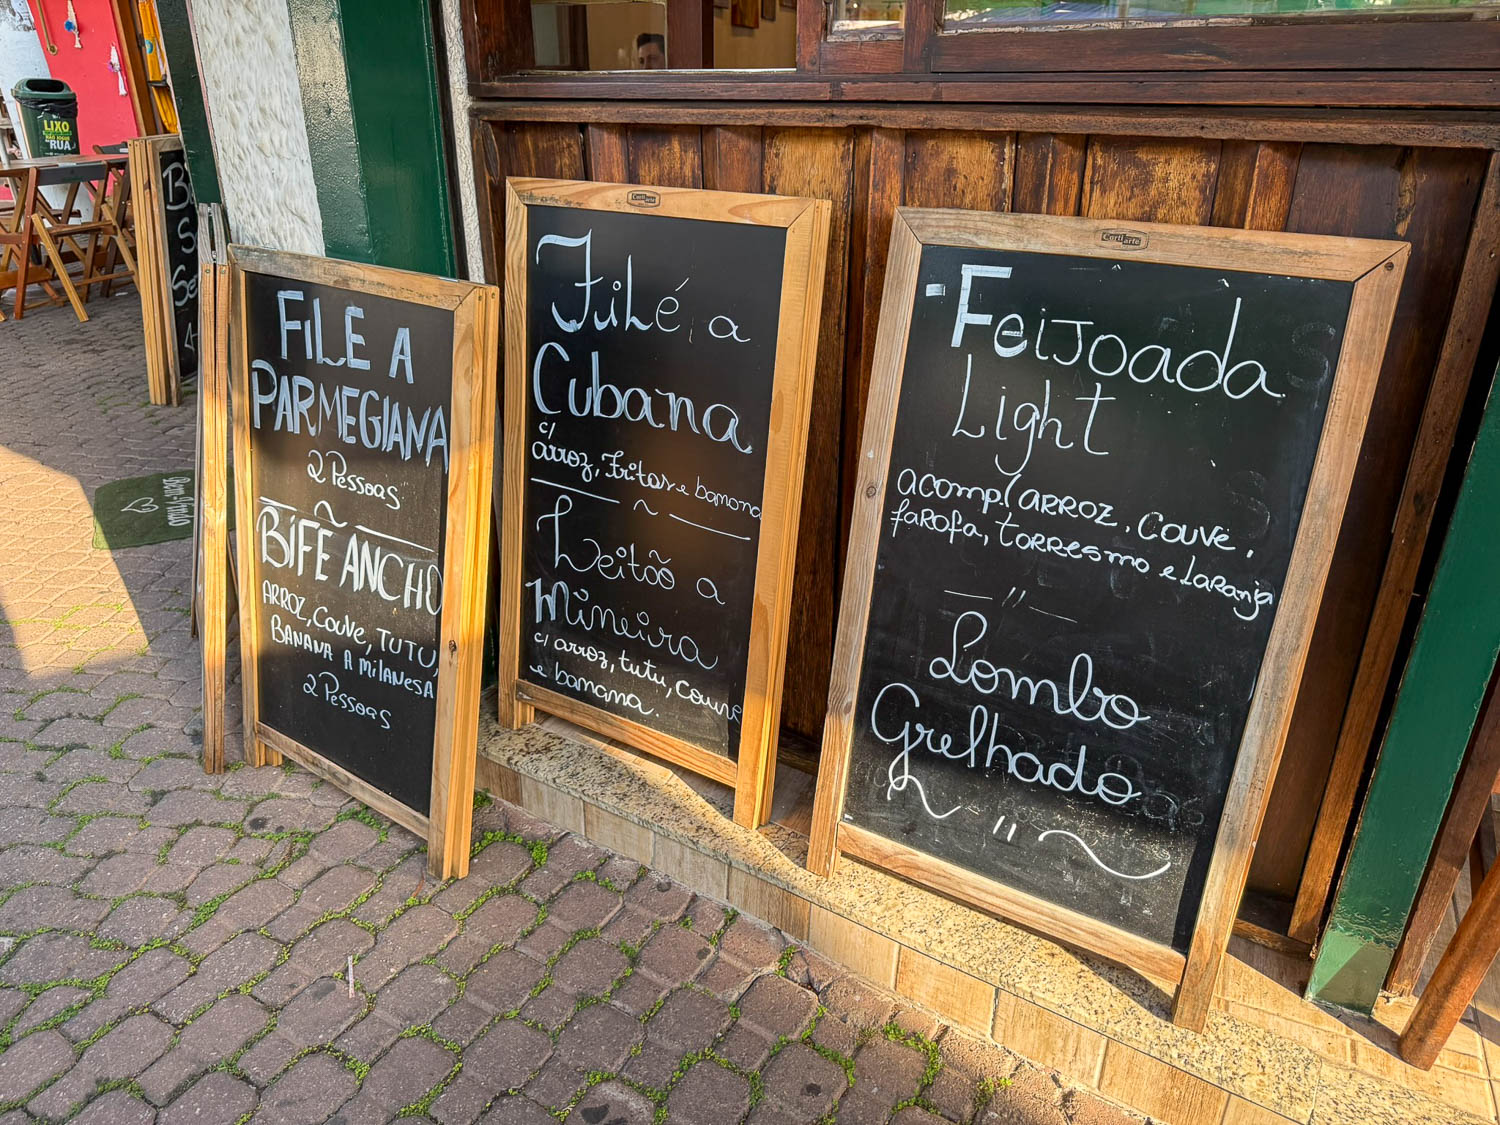 LIXO
RUA
FILE A
PARMEGIANA
2 Pessoas
~
BIFE ANCHO
ARROZ, COUVE, TUTU,
BANANA A MILANESA
2 Pessoas
Filé a
Cubana
c/
arroz, Fritas e banana
~
Leitão a
Mineira
c/ arroz, tutu, couve
e banana.
Corti arte
- Feijoada
Light
acomp. (ARROZ, couve,
faROfa, torresmo e laranja
Lombo
Grelhado